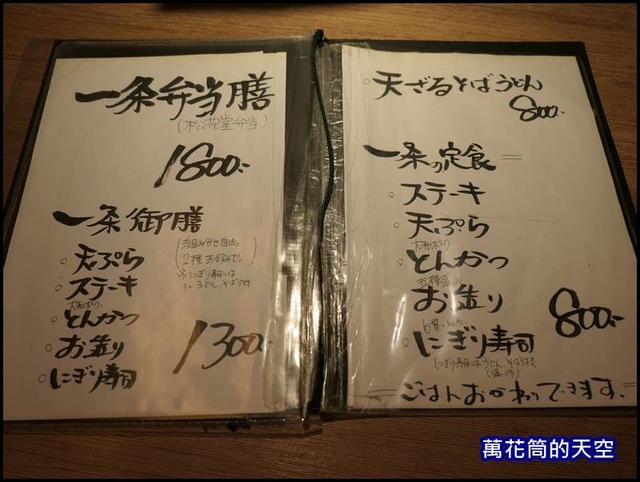 一条弁当膳
(松花堂弁当)
1800.-
一条御膳
。天ぷら
。ステーキ
。とんかつ
。お造り
。にぎり寿司
2種お好みで
1300.-
。天ざるそばうどん
800.-
一条の定食
。ステーキ
。天ぷら
。とんかつ
。お造り
。にぎり寿司
800.-
ごはんおかわりできます。
萬花筒的天空